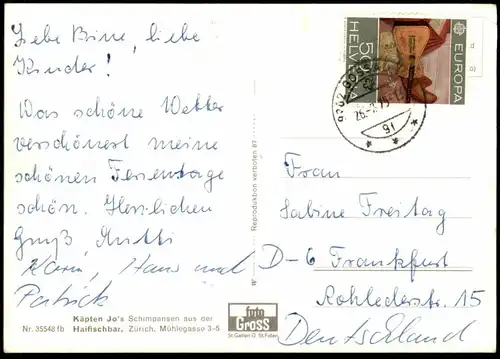 Liebe Bine, liebe
Kinder!
Das schöne Wetter
verschönest meine
schönen Ferientage
schön. Herzlichen
Gruß, Mutti
Karin, Hans und
Patrick
Käpten Jo's Schimpansen aus der
Nr. 35548 fb Haifischbar, Zürich, Mühlegasse 3-5
Reproduktion verboten 87
foto
GROSS
St.Gallen O. St.Fiden
HELVETIA 50
EUROPA
Frau
Sabine Freitag
D-6 Frankfurt
Rohlederstr. 15
Deutschland